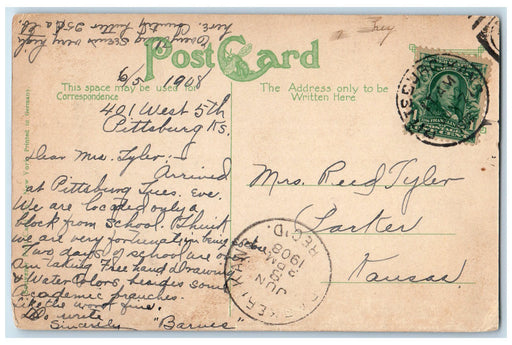 Everything seems very high
here. Country butter 25¢ a lb.
Post Card
This space may be used for
Correspondence
The Address only to be
Written Here
6/5 1908
401 West 5th
Pittsburg Ks.
Dear Mrs. Tyler:-
Arrived
at Pittsburg Tues. Eve.
We are located only a
block from school. Think
we are very fortunate in being so close
Two days of school are over
Am taking Free hand Drawing
& Water Colors, besides some
academic branches.
Like the work fine.
Do write
Sincerely
"Barnes"
Mrs. Reed Tyler
Parker
Kansas.
PARKER, KAN.
JUN
8
AM
1908
REC'D